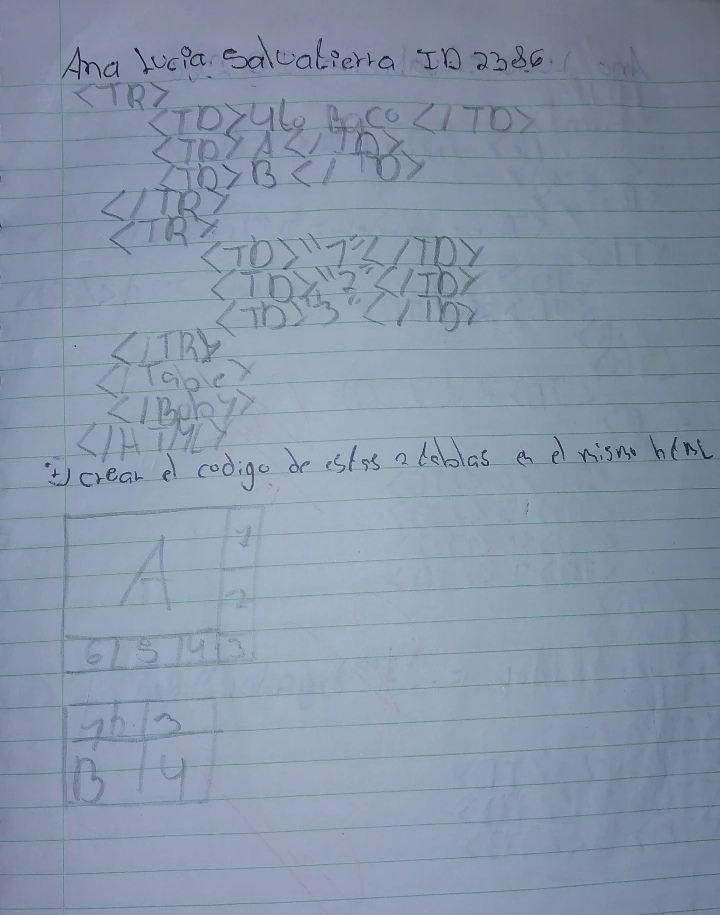 Ana Lucia Salvatierra ID 2386
<TR>
<TD>4to Baco</TD>
<TD>A</TD>
<TD>B</TD>
</TR>
<TR>
<TD>"1"</TD>
<TD>"2"</TD>
<TD>"3"</TD>
</TR>
</Table>
</Boby>
</HTML>
crear el codigo de estas 2 tablas en el mismo html
A 1
2
6 5 4 3
3
B 4